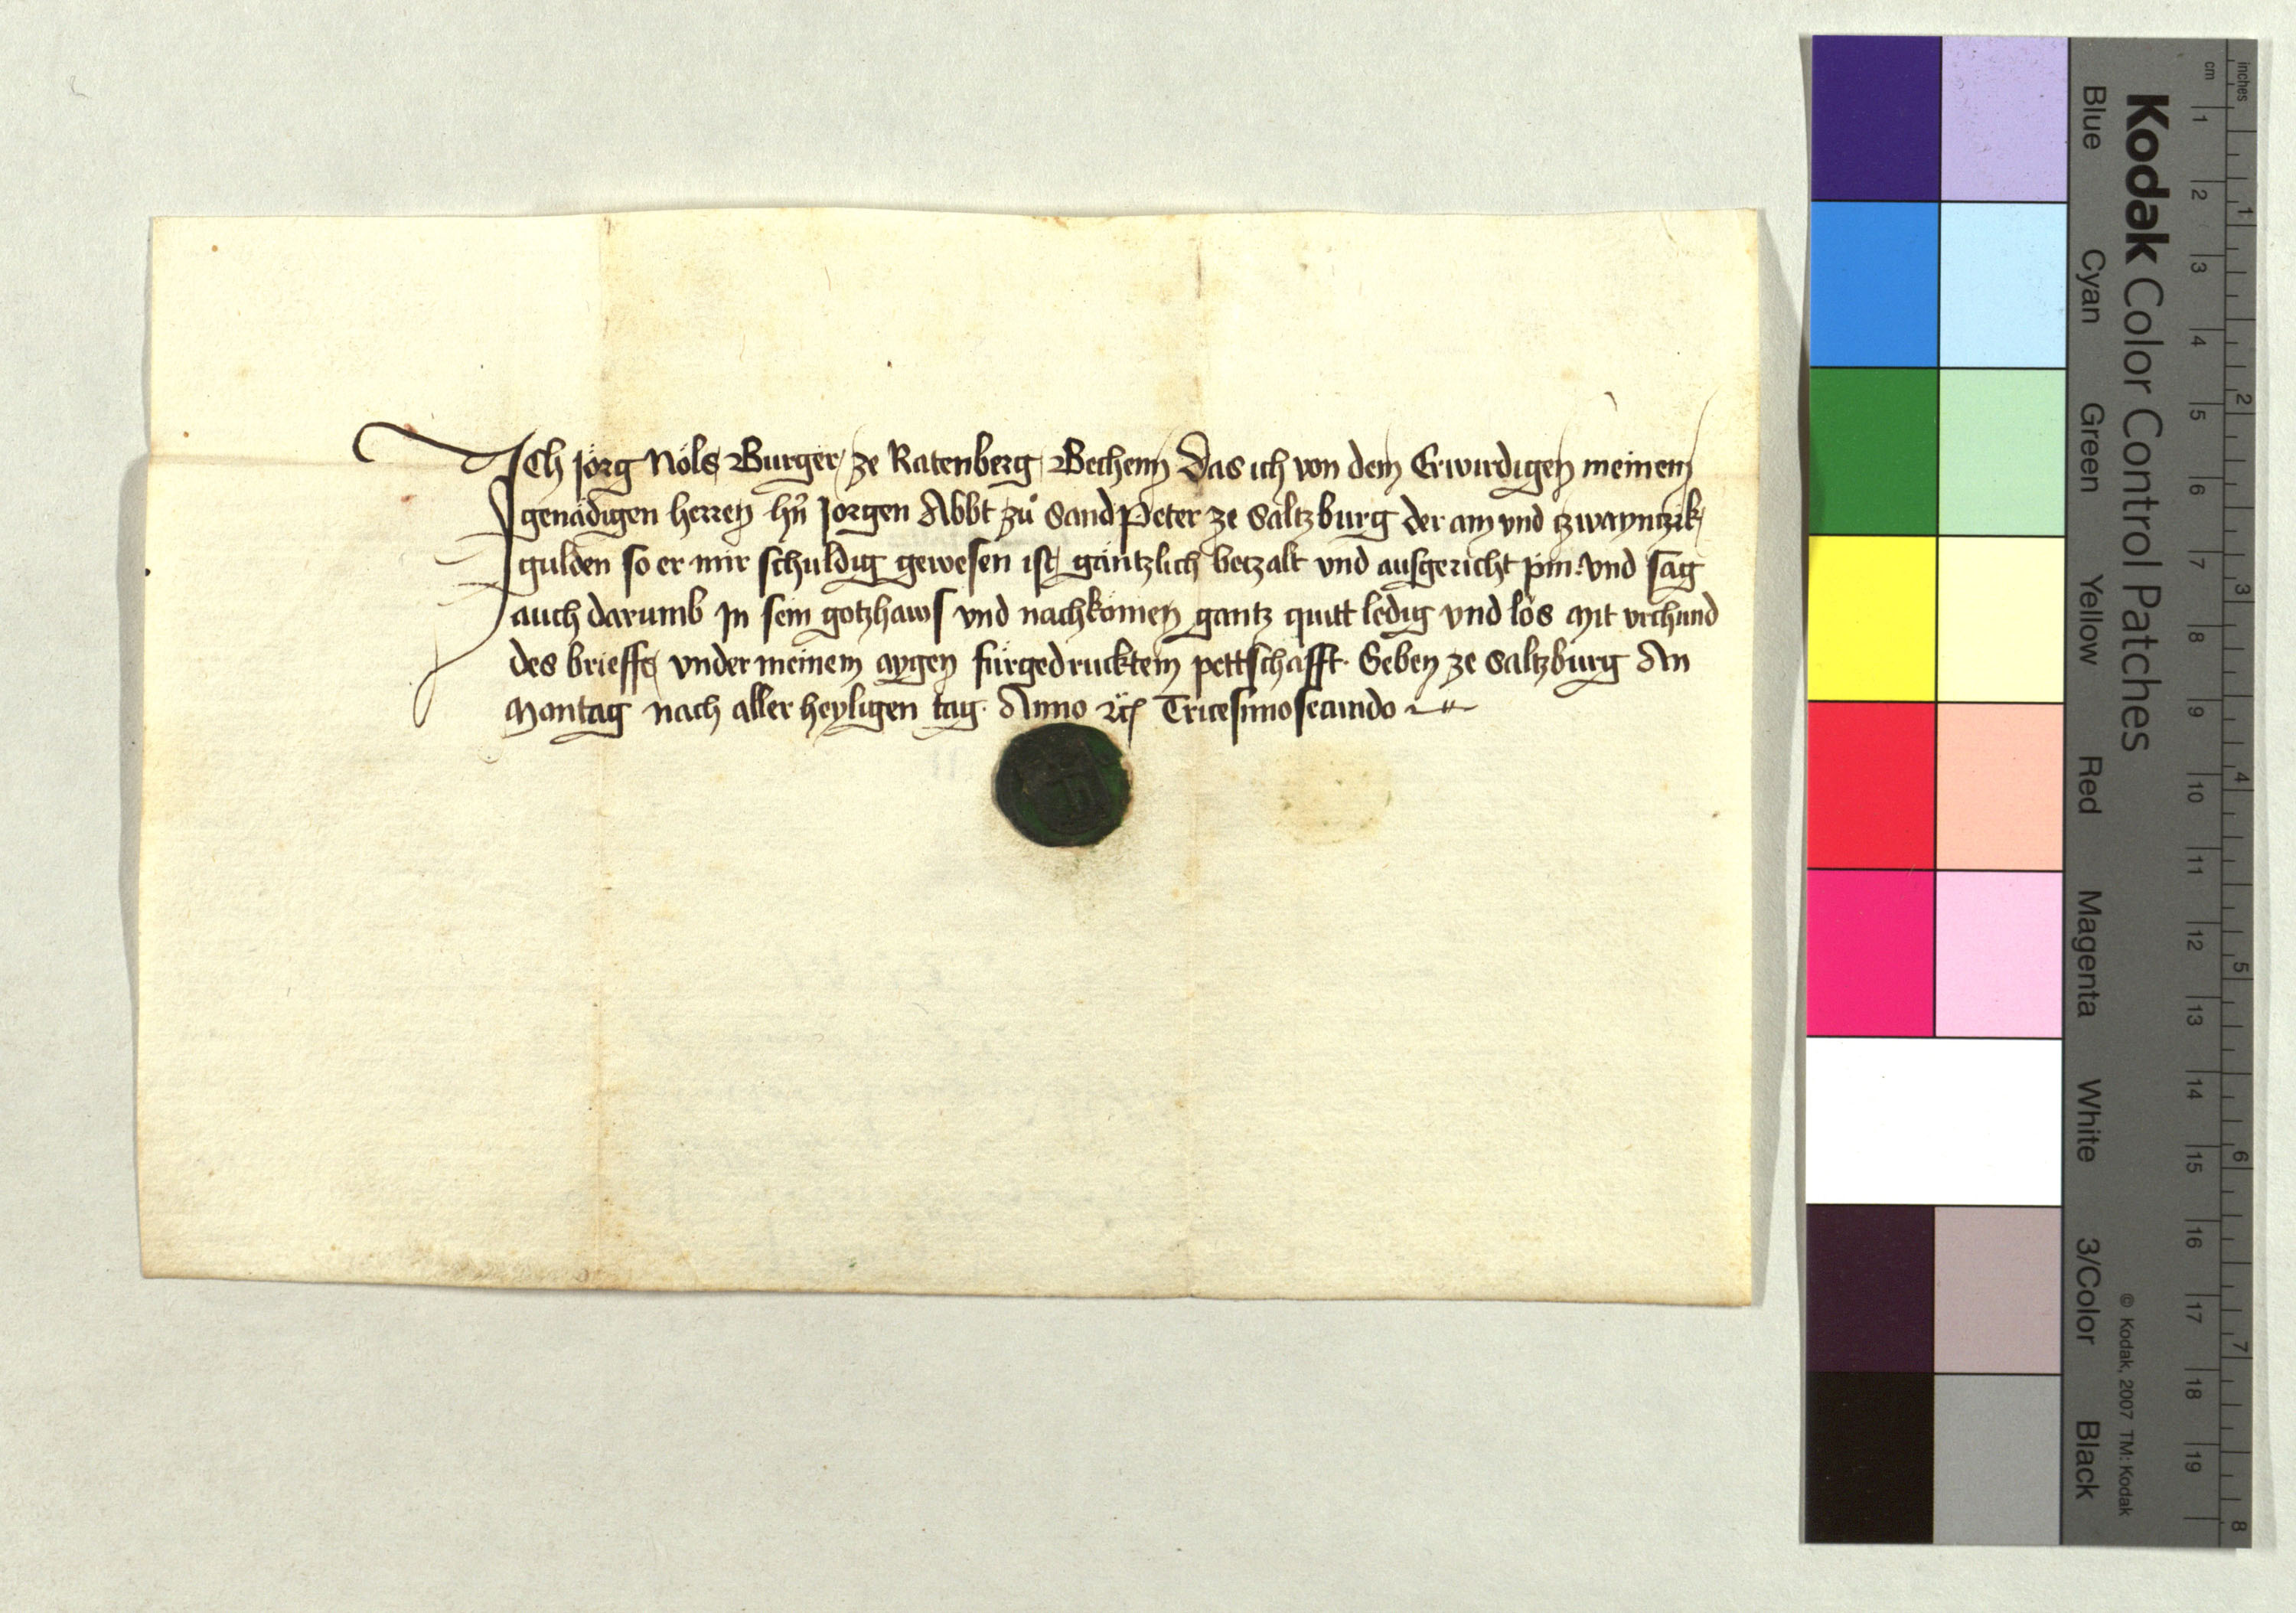 ICh Jörg Nöls Burger ze Ratenberg Bechenn Das ich von dem Erwirdigen meinem
genädigen herren hn̄ Jorgen Abbt zů Sand Peter ze Saltzburg der ain vnd tzwayntzik
gulden so er mir schuldig gewesen ist gäntzlich betzalt vnd ausgericht pin. vnd sag
auch darumb In sein gotzhaws vnd nachkömen gantz quitt ledig vnd lös Mit vrchund
des brieffs vnder meinem aygen fürgedrucktem pettschäfft. Geben ze Saltzburg An
Montag nach aller heyligen tag. Anno etc Tricesimosecundo
Kodak Color Control Patches
Blue Cyan Green Yellow Red Magenta White 3/Color Black
© Kodak, 2007 TM: Kodak
cm 1 2 3 4 5 6 7 8 9 10 11 12 13 14 15 16 17 18 19
inches 1 2 3 4 5 6 7 8